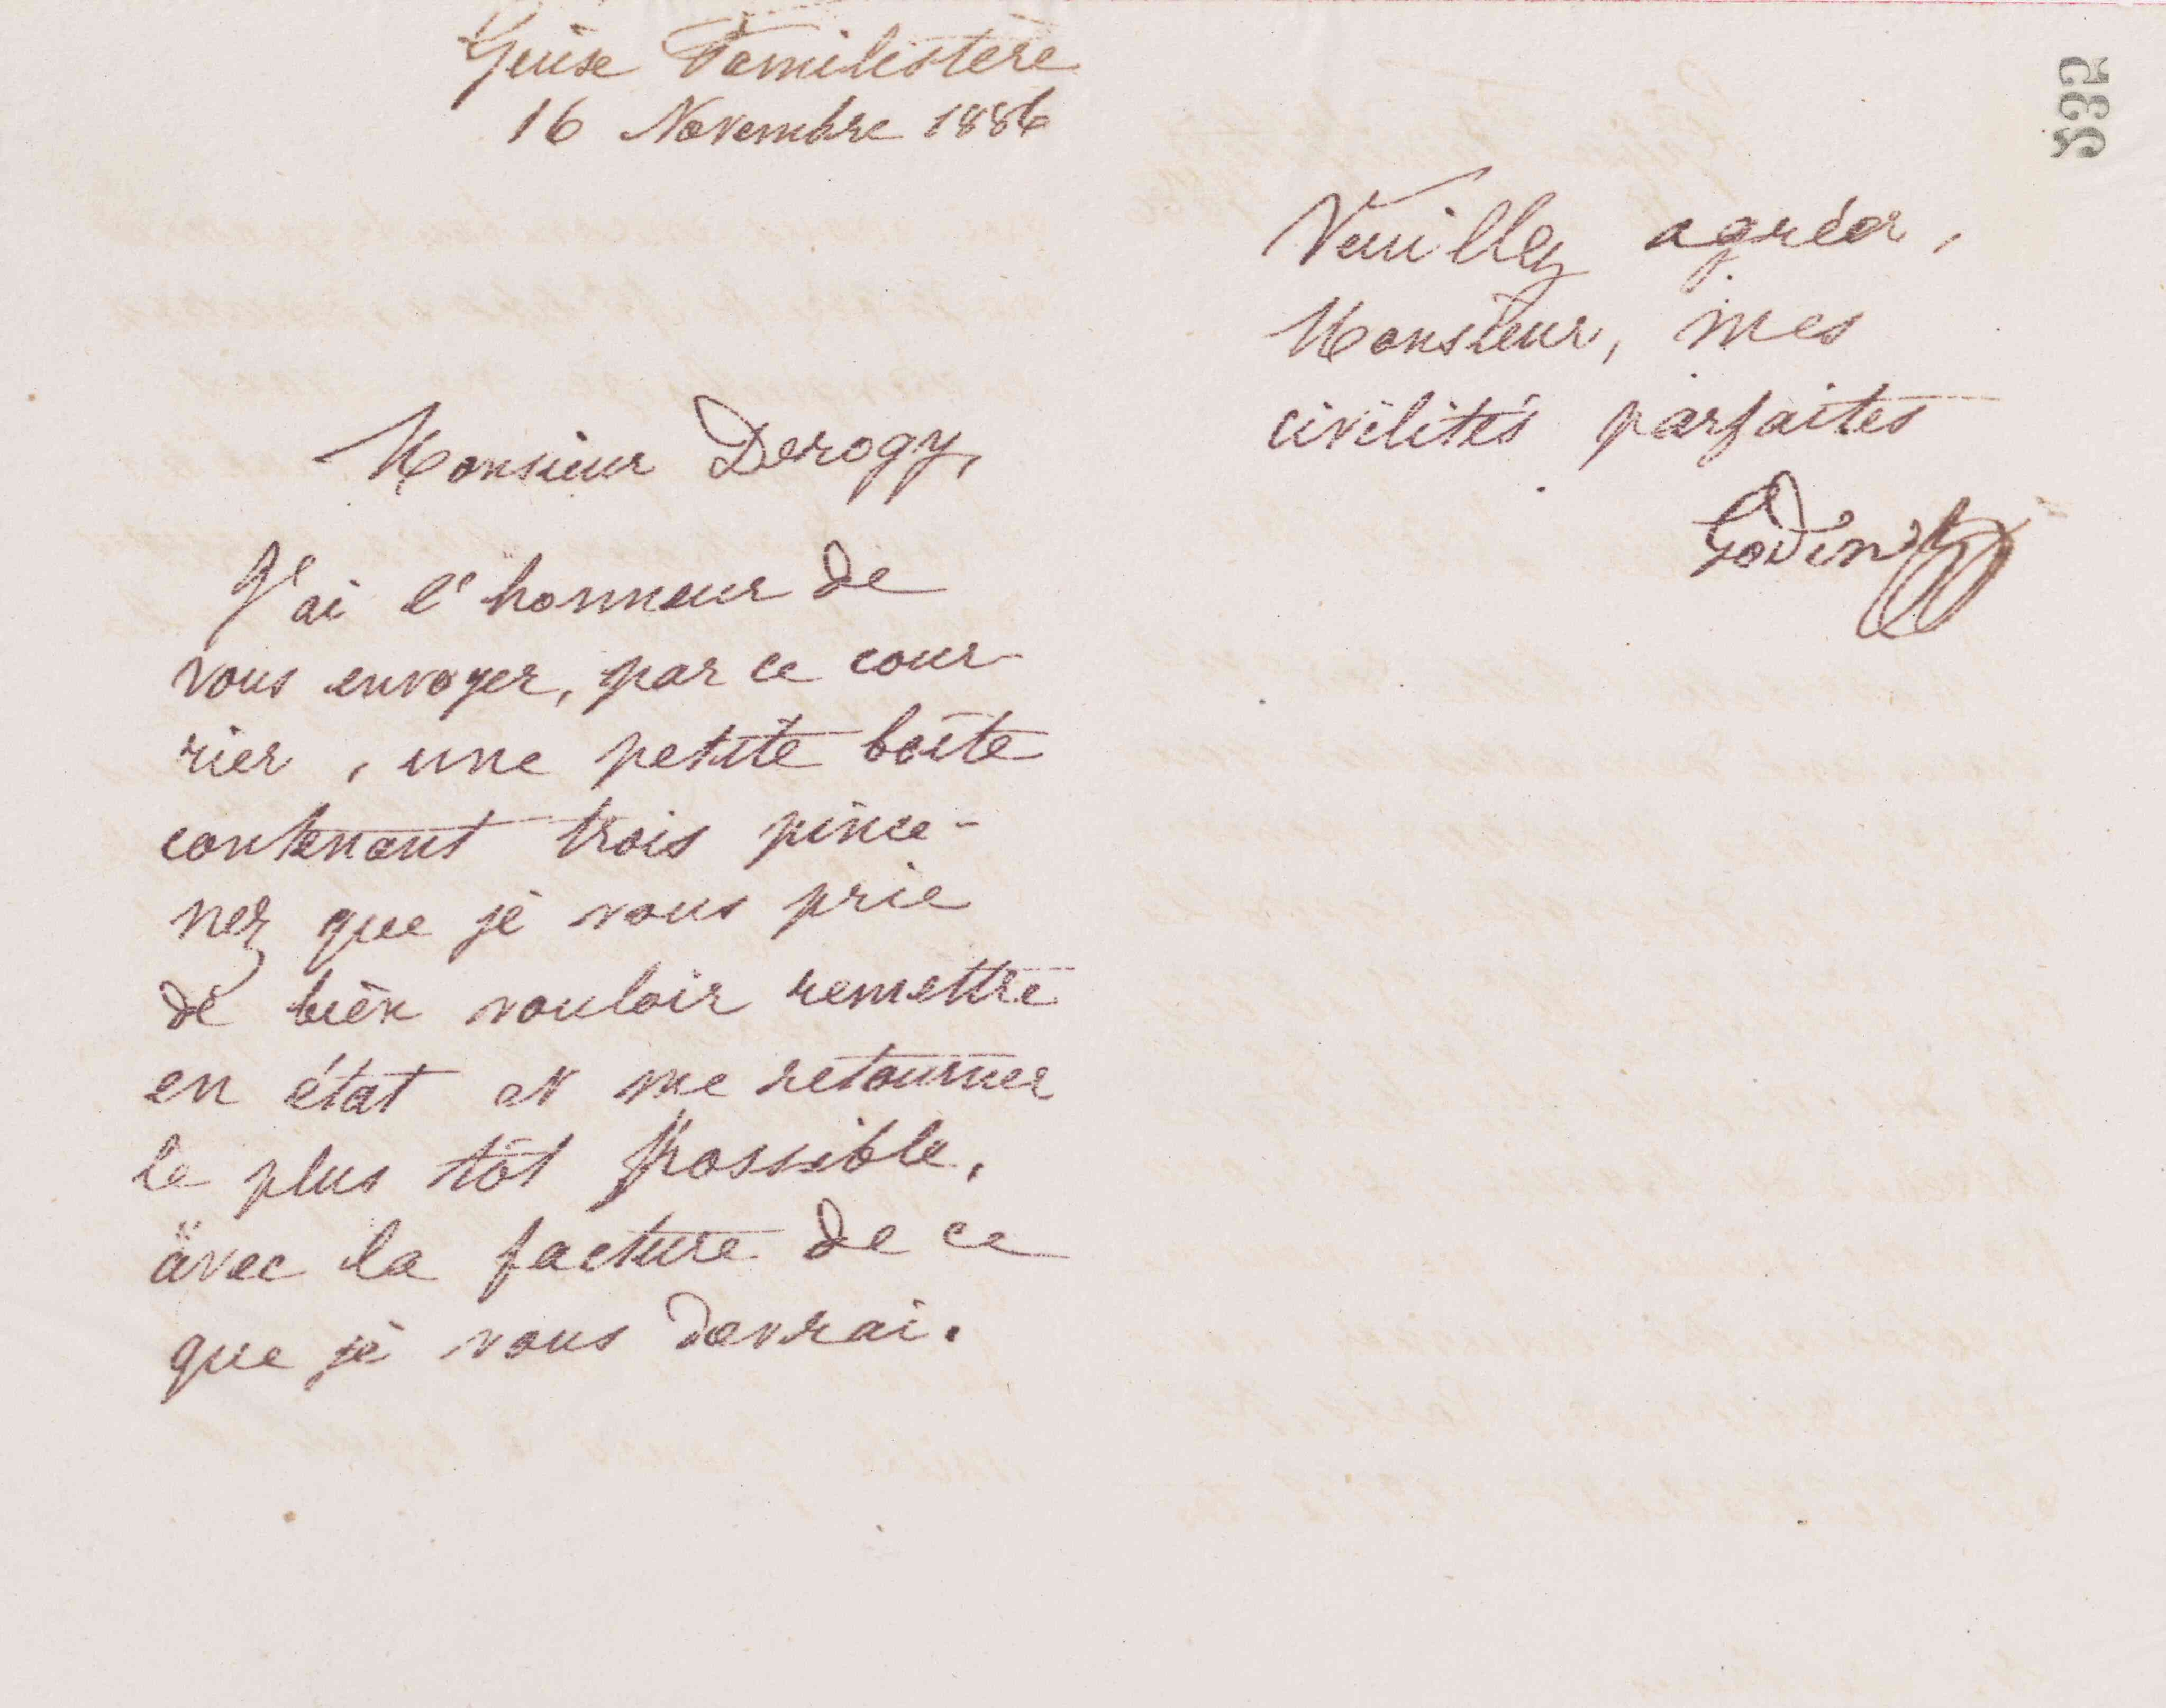 Guise Familistère
16 Novembre 1886
Monsieur Derogy,
J'ai l'honneur de
vous envoyer, par ce cour
rier, une petite boîte
contenant trois pince-
nez que je vous prie
de bien vouloir remettre
en état et me retourner
le plus tôt possible,
avec la facture de ce
que je vous devrai.
532
Veuillez agréer,
Monsieur, mes
civilités parfaites
Godin